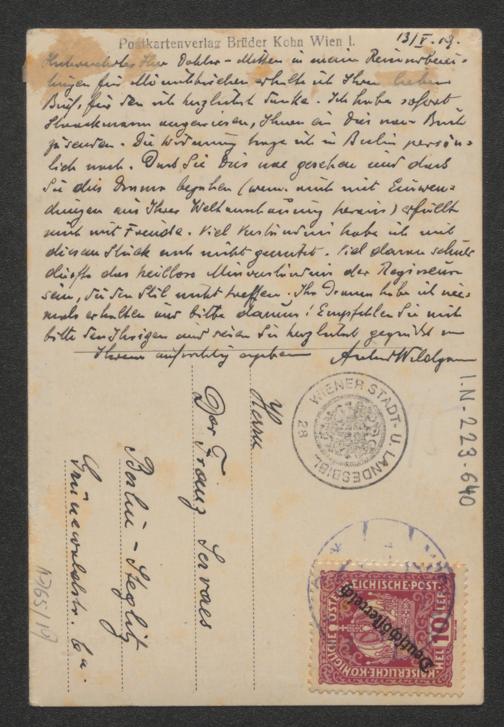 Postkartenverlag Brüder Kohn Wien I.
13/V. 19.
Sehr verehrter Herr Doktor – Mitten in meinen Reisevorberei-
tungen für erhalte ich Ihren lieben
Brief, für den ich herzlichst danke. Ich habe sofort
Staackmann angewiesen, Ihnen das neue Buch
zu senden. Die Widmung trage ich in Berlin persön-
lich nach. Daß Sie Dies irae gesehen und daß
Sie dies Drama bejahen (wenn auch mit Einwen-
dungen aus Ihrer Weltanschauung heraus) erfüllt
mich mit Freude. Viel Verständnis habe ich mit
diesem Stück noch nicht geerntet. Viel daran schuld
dürfte das heillose Missverständnis der Regisseure
sein, die den Stil nicht treffen. Ihr Drama habe ich nie-
mals erhalten und bitte darum! Empfehlen Sie mich
bitte den Ihrigen und seien Sie herzlichst gegrüßt von
Ihrem aufrichtig ergebenen Anton Wildgans
Herrn
Dor Franz Servaes
Berlin - Steglitz
Grunewaldstr. 6 a.
WIENER STADT- U. LANDESBIBL.
28
I.N-223.640
KAISERLICHE-KÖNIGLICHE ÖSTERREICHISCHE-POST
HELLER 10 HELLER
Deutschösterreich